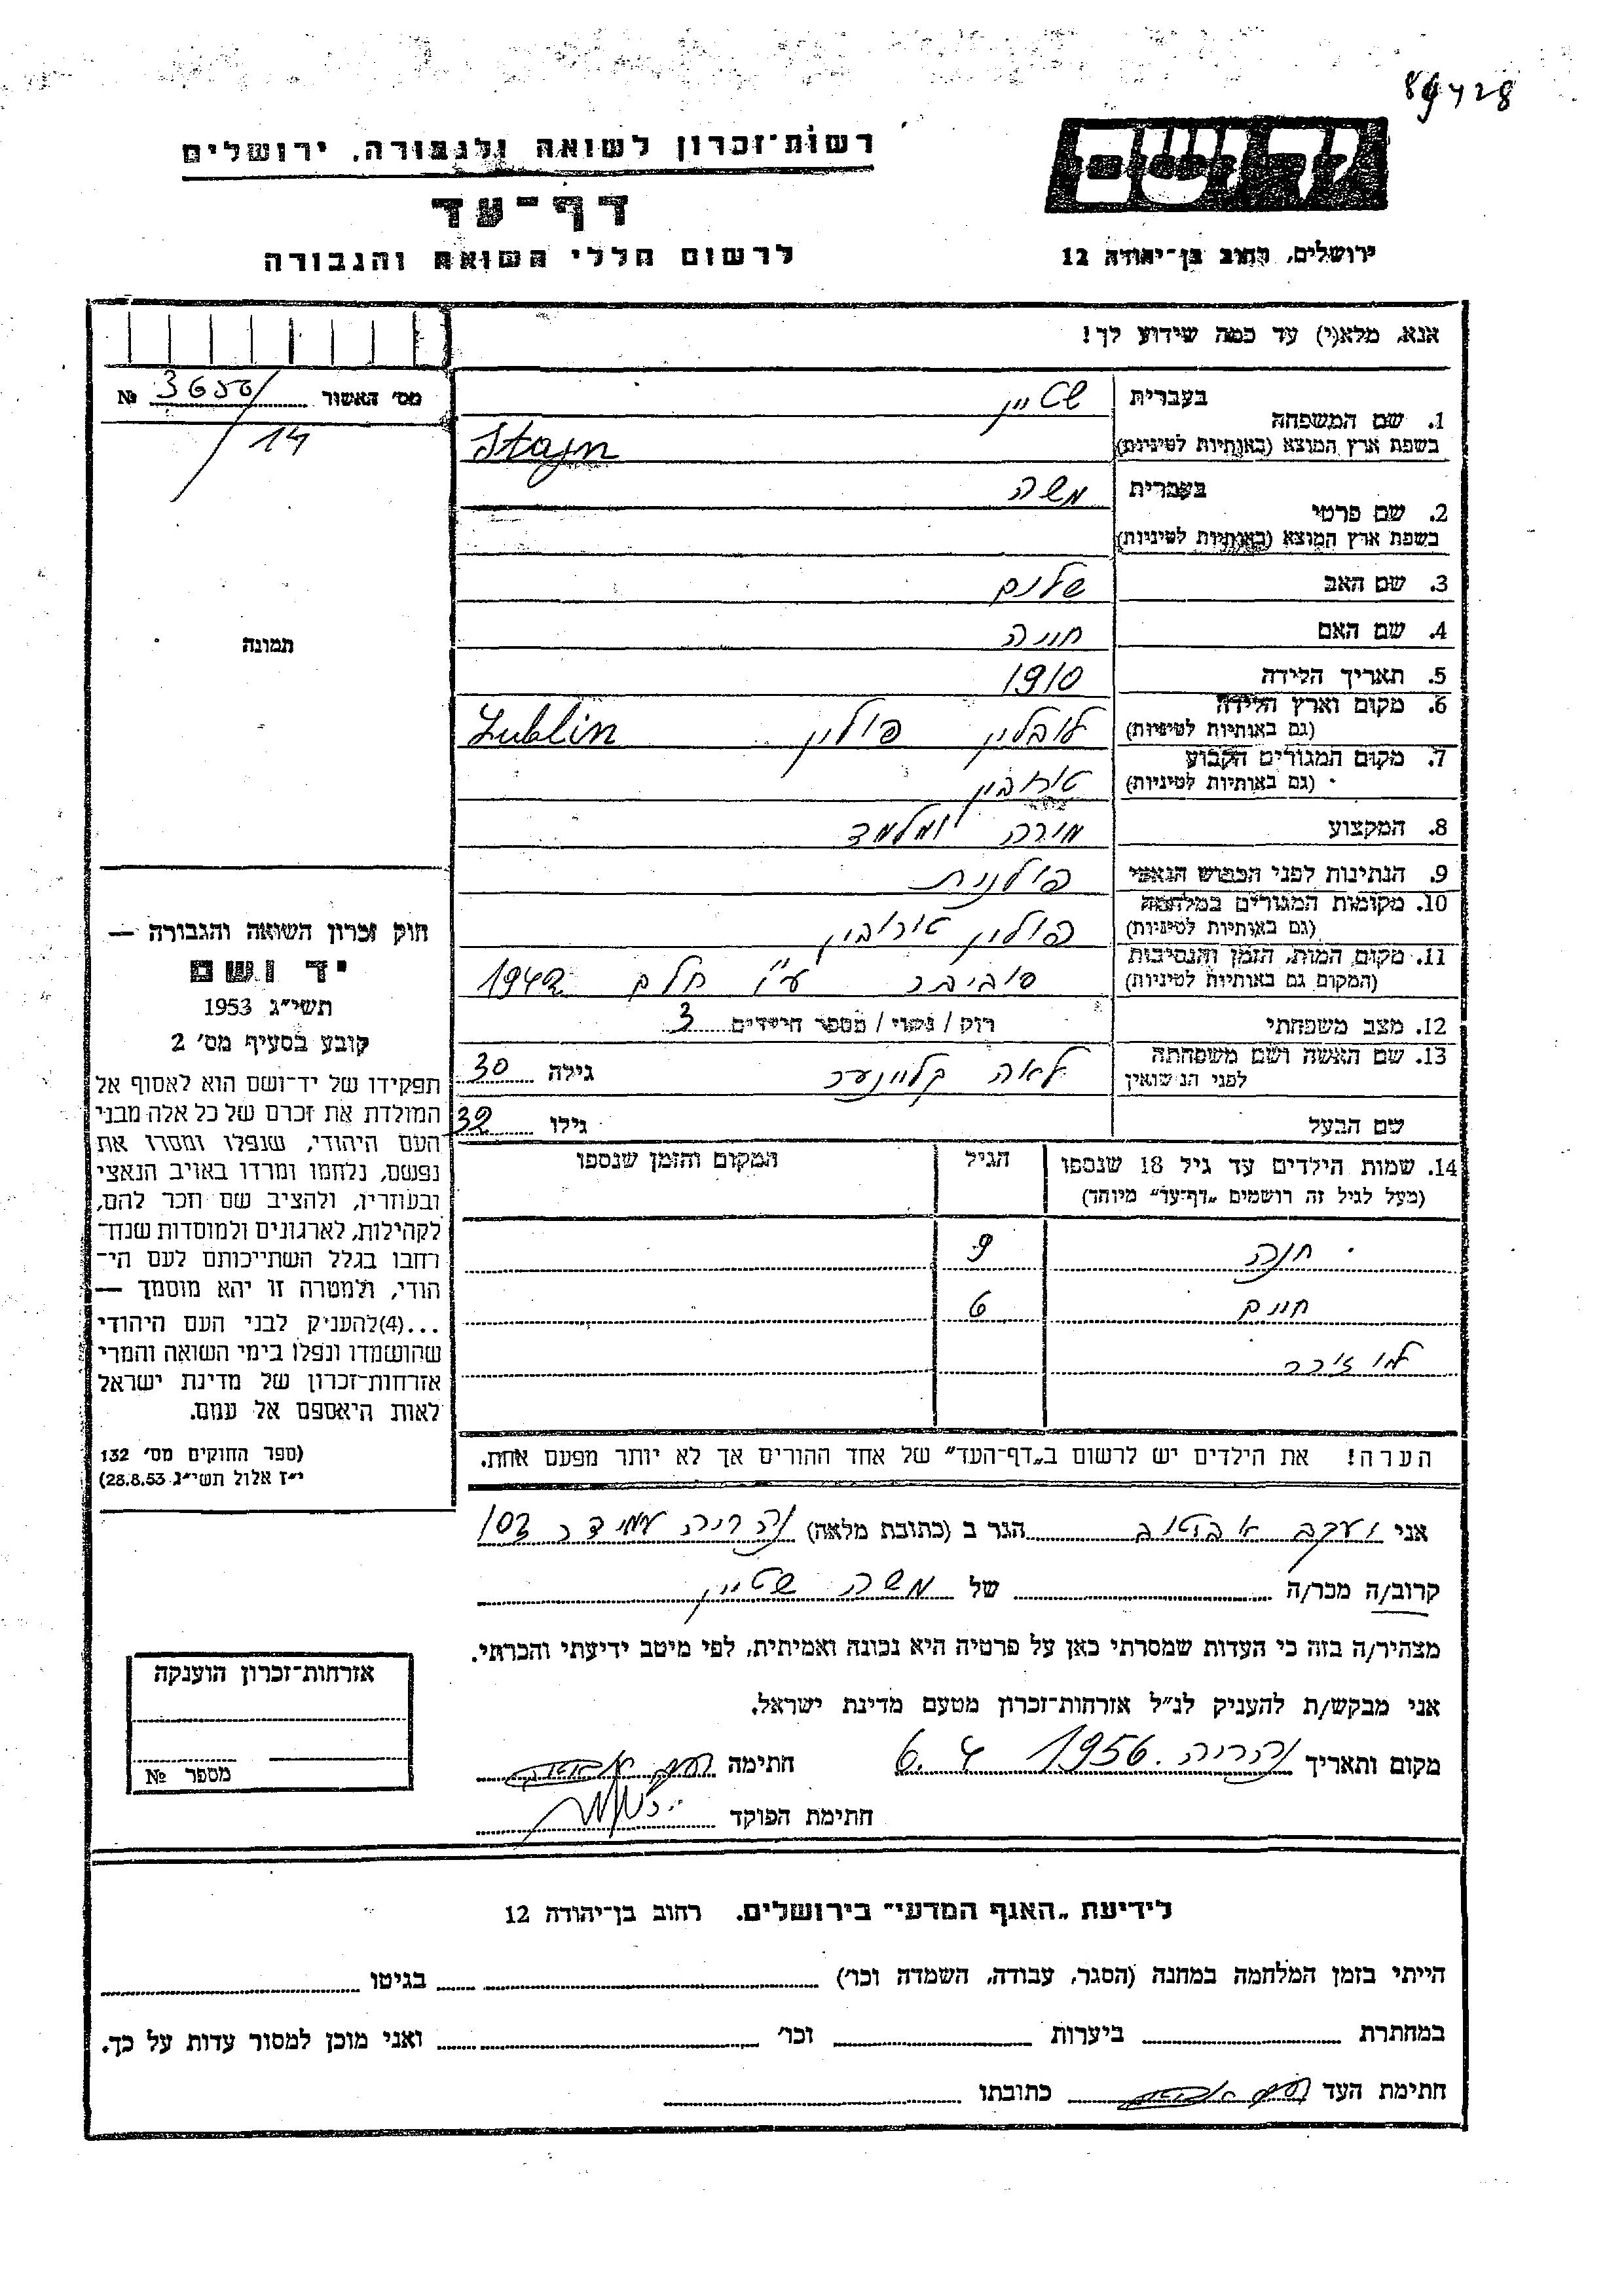 89428
רשות־זכרון לשואה ולגבורה, ירושלים
יד ושם
דף־עד
לרשום חללי השואה והגבורה
ירושלים, רחוב בן־יהודה 12
אנא, מלא(י) עד כמה שידוע לך!
מס׳ האשור 3650/ №
14
1. שם המשפחה
בעברית שטיין
בשפת ארץ המוצא (באותיות לטיניות) Stajn
2. שם פרטי
בעברית משה
בשפת ארץ המוצא (באותיות לטיניות)
3. שם האב שלום
4. שם האם חנה
5. תאריך הלידה 1910
6. מקום וארץ הלידה (גם באותיות לטיניות) לובלין פולין Lublin
7. מקום המגורים הקבוע (גם באותיות לטיניות) טורובין
8. המקצוע מורה ומלמד
9. הנתינות לפני הכבוש הנאצי פולנית
10. מקומות המגורים במלחמה (גם באותיות לטיניות) פולין טורובין
11. מקום המות, הזמן והנסיבות (המקום גם באותיות לטיניות) סוביבור ע״י חלם 1942
12. מצב משפחתי רווק / נשוי / מספר הילדים 3
13. שם האשה ושם משפחתה לפני הנישואין לאה קליינער גילה 30
שם הבעל גילו 32
14. שמות הילדים עד גיל 18 שנספו
(מעל לגיל זה רושמים „דף־עד״ מיוחד)
הגיל
המקום והזמן שנספו
חנה 9
חיים 6
הערה! את הילדים יש לרשום ב„דף־העד״ של אחד ההורים אך לא יותר מפעם אחת.
תמונה
חוק זכרון השואה והגבורה —
יד ושם
תשי״ג 1953
קובע בסעיף מס׳ 2
תפקידו של יד־ושם הוא לאסוף אל
המולדת את זכרם של כל אלה מבני
העם היהודי, שנפלו ומסרו את
נפשם, נלחמו ומרדו באויב הנאצי
ובעוזריו, ולהציב שם וזכר להם,
לקהילות, לארגונים ולמוסדות שנח־
רבו בגלל השתייכותם לעם הי־
הודי, ולמטרה זו יהא מוסמך —
...(4)להעניק לבני העם היהודי
שהושמדו ונפלו בימי השואה והמרי
אזרחות־זכרון של מדינת ישראל
לאות היאספם אל עמם.
(ספר החוקים מס׳ 132
י״ז אלול תשי״ג 28.8.53)
אני יעקב הגר ב (כתובת מלאה) נהריה עמידר 103
קרוב/ה מכר/ה של משה שטיין
מצהיר/ה בזה כי העדות שמסרתי כאן על פרטיה היא נכונה ואמיתית, לפי מיטב ידיעתי והכרתי.
אני מבקש/ת להעניק לנ״ל אזרחות־זכרון מטעם מדינת ישראל.
מקום ותאריך נהריה. 1956 6.4 חתימה
חתימת הפוקד
אזרחות־זכרון הוענקה
מספר №
לידיעת „האגף המדעי״ בירושלים. רחוב בן־יהודה 12
הייתי בזמן המלחמה במחנה (הסגר, עבודה, השמדה וכו׳) בגיטו
במחתרת ביערות וכו׳ ואני מוכן למסור עדות על כך.
חתימת העד כתובתו